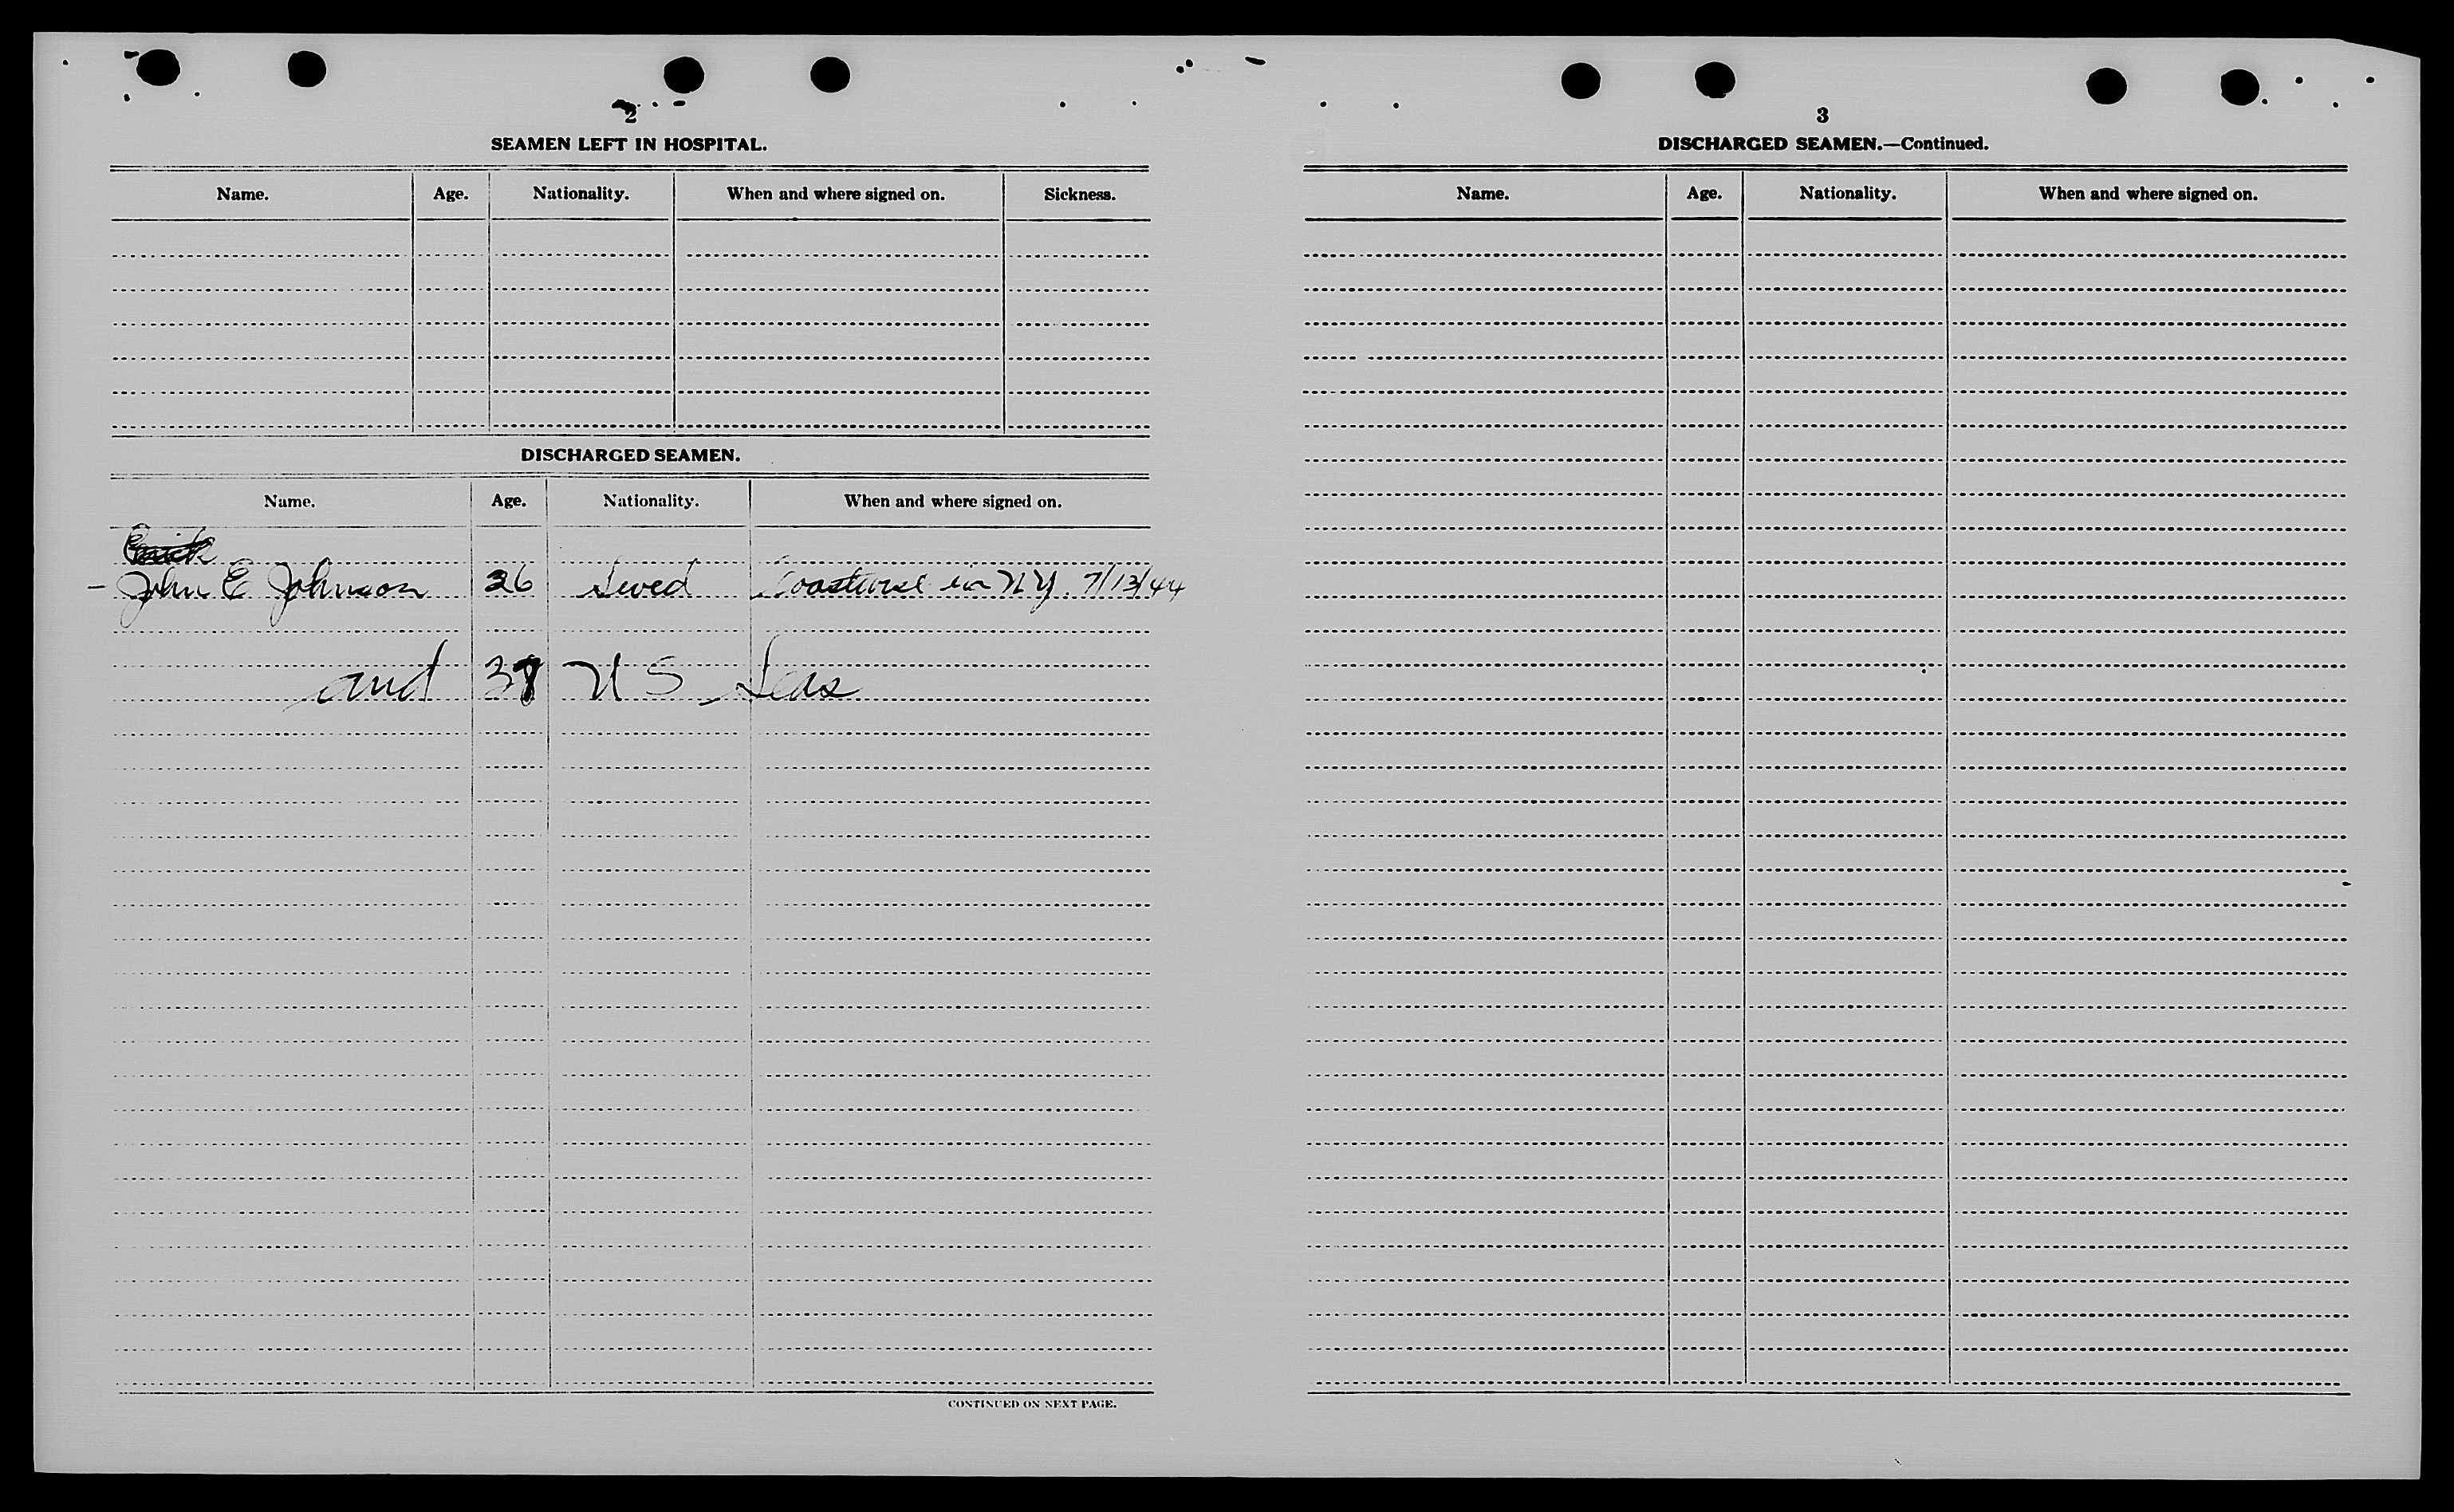 2
SEAMEN LEFT IN HOSPITAL.
Name. Age. Nationality. When and where signed on. Sickness.
DISCHARGED SEAMEN.
Name. Age. Nationality. When and where signed on.
John E Johnson 26 Swed Coastwise in NY. 7/13/44
and 37 U S Seas
CONTINUED ON NEXT PAGE.
3
DISCHARGED SEAMEN.—Continued.
Name. Age. Nationality. When and where signed on.